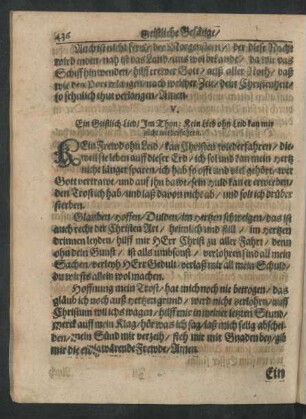 436 Geistliche Gesänge/
Auch ist nicht fern/ der Morgenstern/ der diese Nacht
wird enden/ nah ist das Land/ uns wol bekandt/ da wir das
Schiff hin wenden/ hilff trewer Gott/ auß aller Noth/ daß
wir den Port erlangen/ nach welcher Zeit/ dein Christenheit/
so sehnlich thut verlangen/ Amen.
V.
Ein Geistlich Lied/ Im Thon: Kein Lieb ohn Leid kan mir
nicht wiederfahren.
KEin Frewd ohn Leid/ kan Christen wiederfahren/ die-
weil sie leben auff dieser Erd/ ich sol und kan mein Hertz
nicht länger sparen/ ich hab so offt und viel gehört/ wer
Gott vertrawt/ und auf ihn bawt/ sein Huld kan er erwerben/
den Trost ich hab/ und laß davon nicht ab/ und solt ich drüber
sterben.
Glauben/ Hoffen/ Dulden/ im Hertzen schweigen/ das ist
auch recht der Christen Art/ heimlich und still/ im Hertzen
drinnen leyden/ hilff mir HErr Christ zu aller Fahrt/ denn
ohn dein Gunst/ ist alls umbsonst/ verlohren sind all mein
Sachen/ verleyh HErr Gedult/ verlaß mir all mein Schuld/
du wirsts allein wol machen.
Hoffnung mein Trost/ hat mich noch nie betrogen/ das
gläub ich noch auß Hertzen grund/ werd nicht verlohrn/ auff
Christum wil ichs wagen/ hilff mir in meiner letzten Stund/
merck auff mein Klag/ hör was ich sag/ laß mich selig abschei-
den/ mein Sünd mir verzeih/ sich mir mit Gnaden bey/ gib
mir die ewig wärende Frewde/ Amen.
Ein